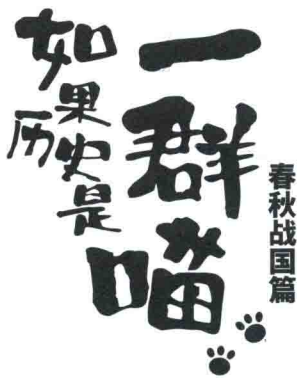 如果历史是
一群喵
春秋战国篇